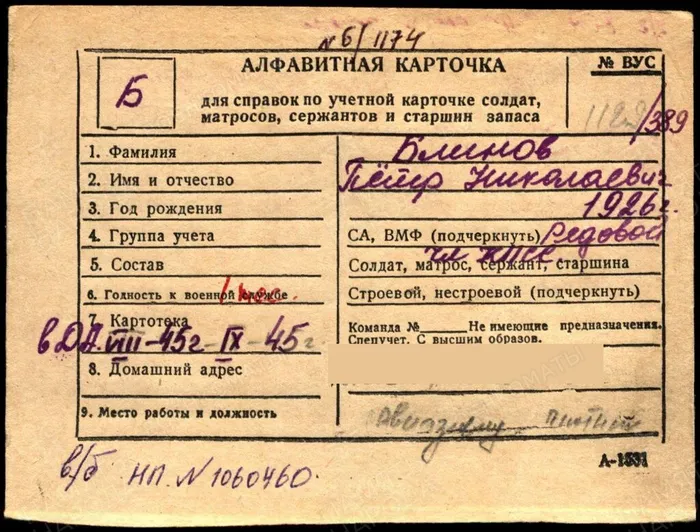 N 6/1174
АЛФАВИТНАЯ КАРТОЧКА
№ ВУС
Б
для справок по учетной карточке солдат,
матросов, сержантов и старшин запаса
/389
1. Фамилия
Блинов
2. Имя и отчество
Пётр Николаевич
3. Год рождения
1926г.
4. Группа учета
СА, ВМФ (подчеркнуть) Рядовой
5. Состав
чл КПСС
Солдат, матрос, сержант, старшина
6. Годность к военной службе
Строевой, нестроевой (подчеркнуть)
7. Картотека
Команда №_____Не имеющие предназначения.
Спецучет. С высшим образов.
в ДА VIII-45г-IX-45г
8. Домашний адрес
9. Место работы и должность
в/б НП. N 1060460.
А-1531